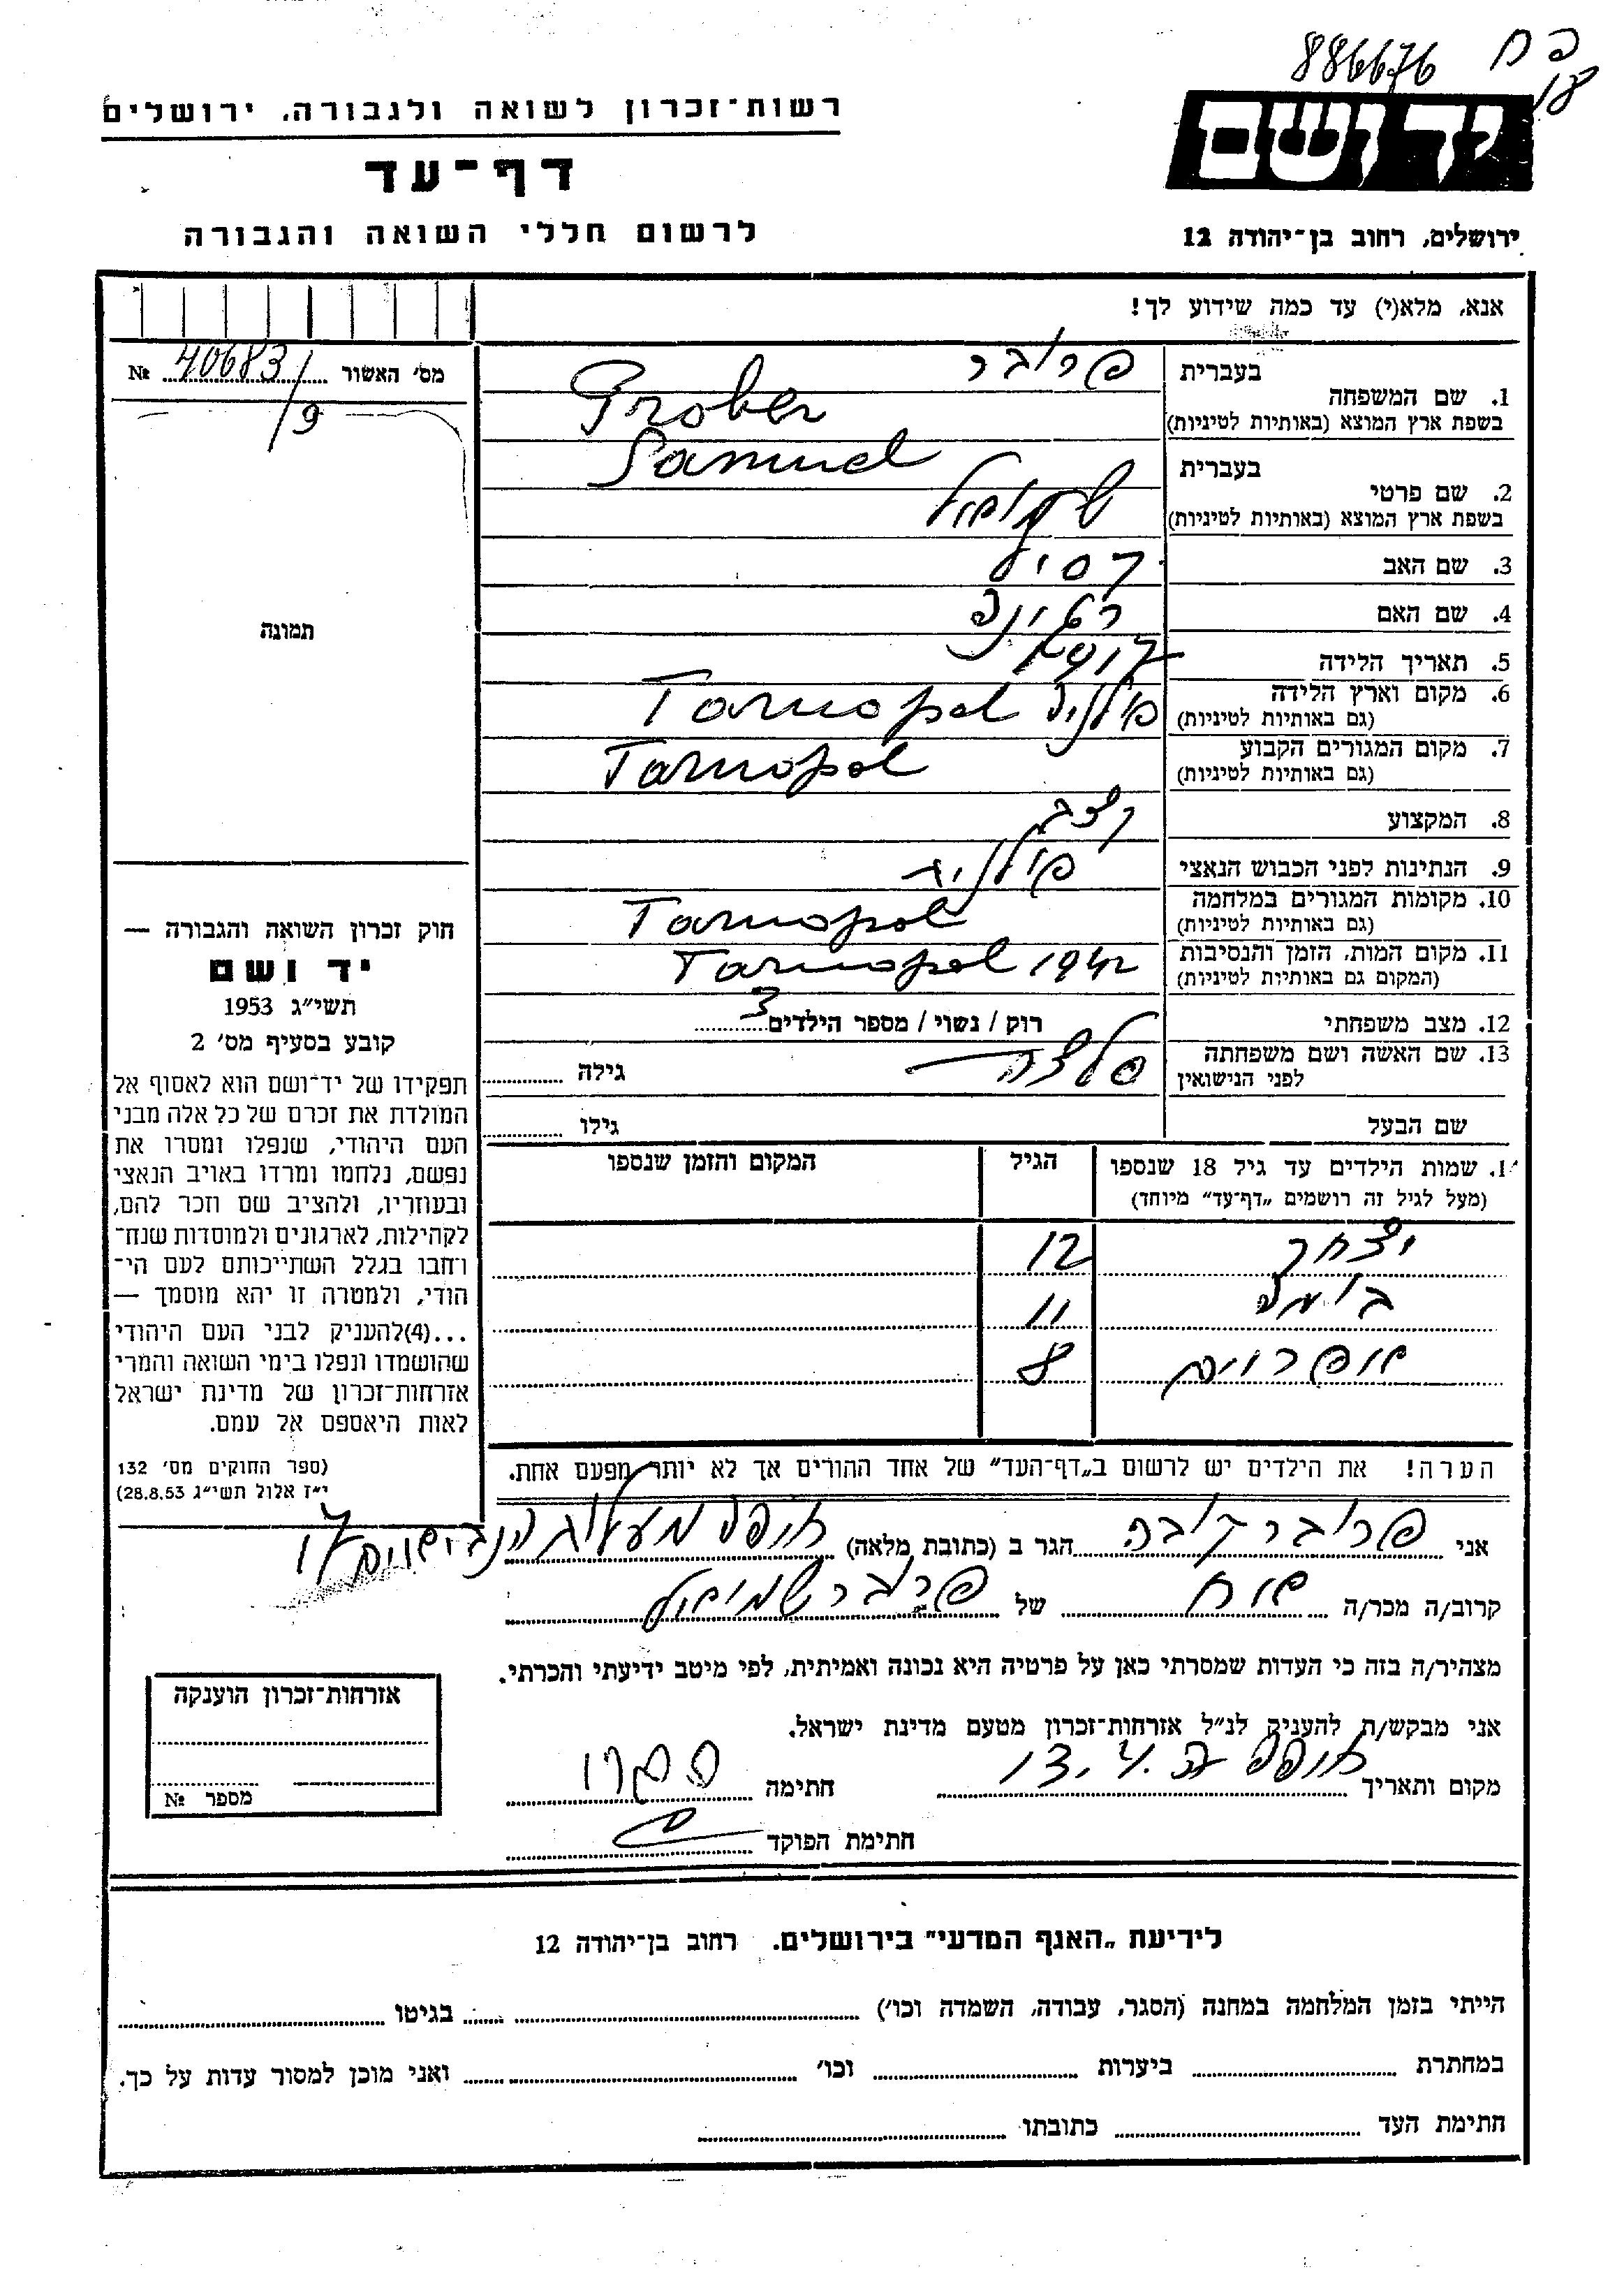 886676
פח
רשות-זכרון לשואה ולגבורה, ירושלים
יד ושם
דף-עד
לרשום חללי השואה והגבורה
ירושלים, רחוב בן-יהודה 12
אנא, מלא(י) עד כמה שידוע לך!
מס' האשור № 40683/9
תמונה
1. שם המשפחה בעברית פרובר
בשפת ארץ המוצא (באותיות לטיניות) Prober
2. שם פרטי בעברית Samuel
בשפת ארץ המוצא (באותיות לטיניות) שמואל
3. שם האב
4. שם האם
5. תאריך הלידה
6. מקום וארץ הלידה (גם באותיות לטיניות) פולניה Tarnopol
7. מקום המגורים הקבוע (גם באותיות לטיניות) Tarnopol
8. המקצוע קצב
9. הנתינות לפני הכבוש הנאצי פולנית
10. מקומות המגורים במלחמה (גם באותיות לטיניות) Tarnopol
11. מקום המות, הזמן והנסיבות (המקום גם באותיות לטיניות) Tarnopol 1942
12. מצב משפחתי רוק / נשוי / מספר הילדים 3
13. שם האשה ושם משפחתה לפני הנישואין גילה
שם הבעל גילו
חוק זכרון השואה והגבורה —
יד ושם
תשי״ג 1953
קובע בסעיף מס' 2
תפקידו של יד-ושם הוא לאסוף אל
המולדת את זכרם של כל אלה מבני
העם היהודי, שנפלו ומסרו את
נפשם, נלחמו ומרדו באויב הנאצי
ובעוזריו, ולהציב שם וזכר להם,
לקהילות, לארגונים ולמוסדות שנח-
רחבו בגלל השתייכותם לעם הי-
הודי, ולמטרה זו יהא מוסמך —
...(4)להעניק לבני העם היהודי
שהושמדו ונפלו בימי השואה והמרי
אזרחות-זכרון של מדינת ישראל
לאות היאספם אל עמם.
(ספר החוקים מס' 132
י״ז אלול תשי״ג 28.8.53)
14. שמות הילדים עד גיל 18 שנספו הגיל המקום והזמן שנספו
(מעל לגיל זה רושמים „דף-עד" מיוחד)
יצחק 12
11
אפרוים 8
הערה! את הילדים יש לרשום ב„דף-העד" של אחד ההורים אך לא יותר מפעם אחת.
אני פרובר הגר ב (כתובת מלאה) חיפה מעלות הנביאים
קרוב/ה מכר/ה אח של פרובר שמואל
מצהיר/ה בזה כי העדות שמסרתי כאן על פרטיה היא נכונה ואמיתית, לפי מיטב ידיעתי והכרתי.
אני מבקש/ת להעניק לנ״ל אזרחות-זכרון מטעם מדינת ישראל.
מקום ותאריך חיפה 13.4. חתימה
חתימת הפוקד
אזרחות-זכרון הוענקה
מספר №
לידיעת „האגף המדעי" בירושלים. רחוב בן-יהודה 12
הייתי בזמן המלחמה במחנה (הסגר, עבודה, השמדה וכו') בגיטו
במחתרת ביערות וכו' ואני מוכן למסור עדות על כך.
חתימת העד כתובתו